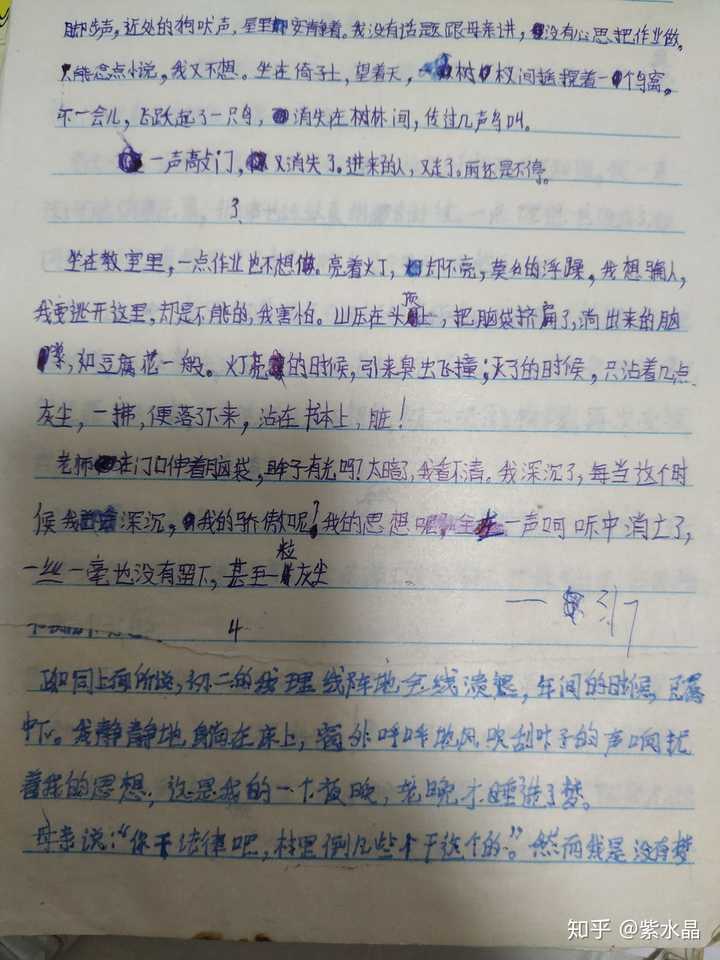 脚步声,近处的狗吠声,屋里却安静着。我没有话题跟母亲讲,没有心思把作业做。
只能念点小说,我又不想。坐在倚子上,望着天,树杈间摇摆着一个鸟窝。
不一会儿,飞跃起了一只鸟,消失在树林间,传过几声鸟叫。
一声敲门,又消失了。进来的人,又走了。雨还是不停。
3
坐在教室里,一点作业也不想做。亮着火丁,却不亮,莫名的浮躁,我想骗人,
我要逃开这里,却是不能的,我害怕。山压在头顶上,把脑袋挤扁了,淌出来的脑
,如豆腐花一般。灯亮的时候,引来臭虫飞撞;灭了的时候,只沾着几点
灰尘,一拂,便落了下来,沾在书本上,脏!
老师在门口伸着脑袋,眸子有光吗?太暗了,我看不清。我深沉了,每当这个时
候我深沉,我的骄傲呢?我的思想呢,一声呵哧中消亡了,
一丝一毫也没有留下,甚至一粒灰尘
4
如同上面所说,初二的我理线阵地全线溃退,年间的时候,已属
中下。我静静地躺在床上,窗外呼呼地风吹刮叶子的声响扰
着我的思想,这是我的一个夜晚,老晚才睡进了梦。
母亲说:“你干法律吧,村里倒几些个干这个的”。然而我是没有梦
知乎 @紫水晶